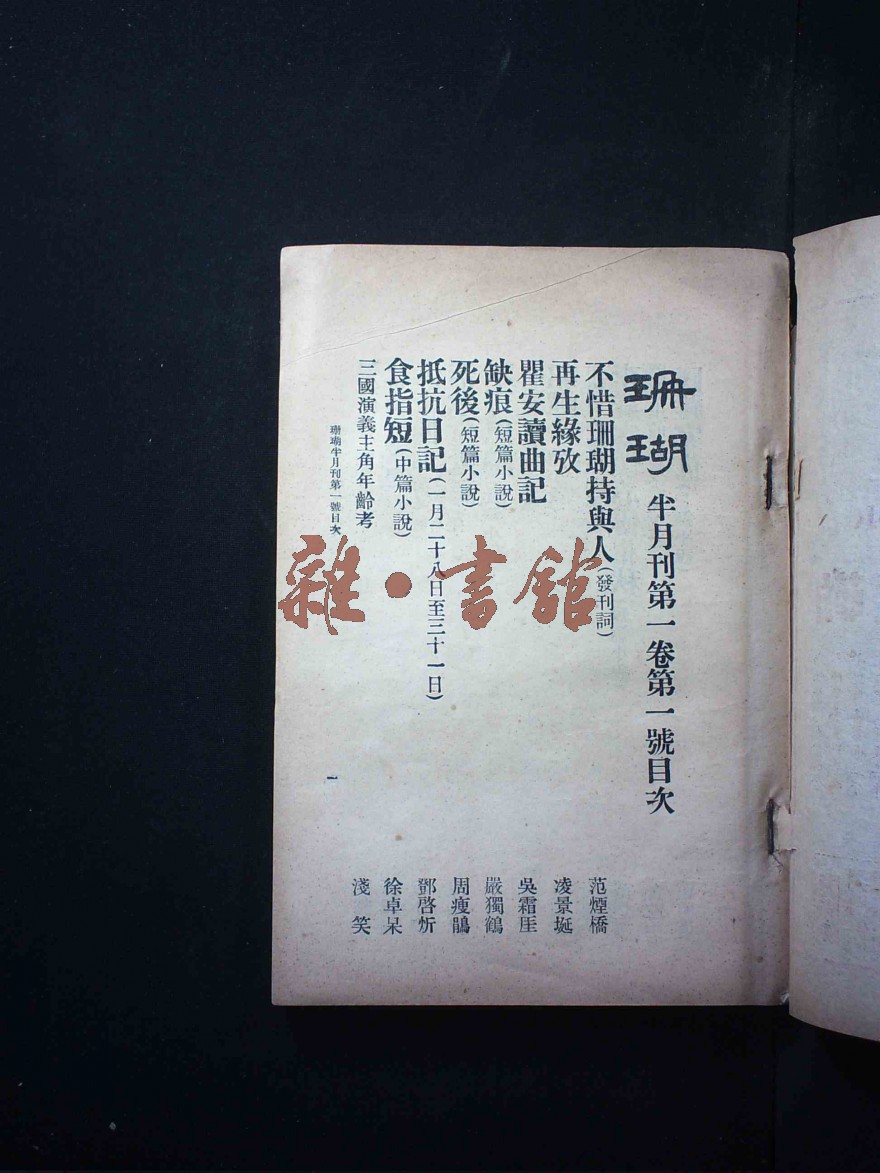 珊瑚 半月刊第一卷第一號目次
不惜珊瑚持與人(發刊詞) 范煙橋
再生緣攷 凌景埏
瞿安讀曲記 吳霜厓
缺痕(短篇小說) 嚴獨鶴
死後(短篇小說) 周瘦鵑
抵抗日記(一月二十八日至三十一日) 鄧啓炘
食指短(中篇小說) 徐卓呆
三國演義主角年齡考 淺笑
珊瑚半月刊第一號目次
一
雜·書館